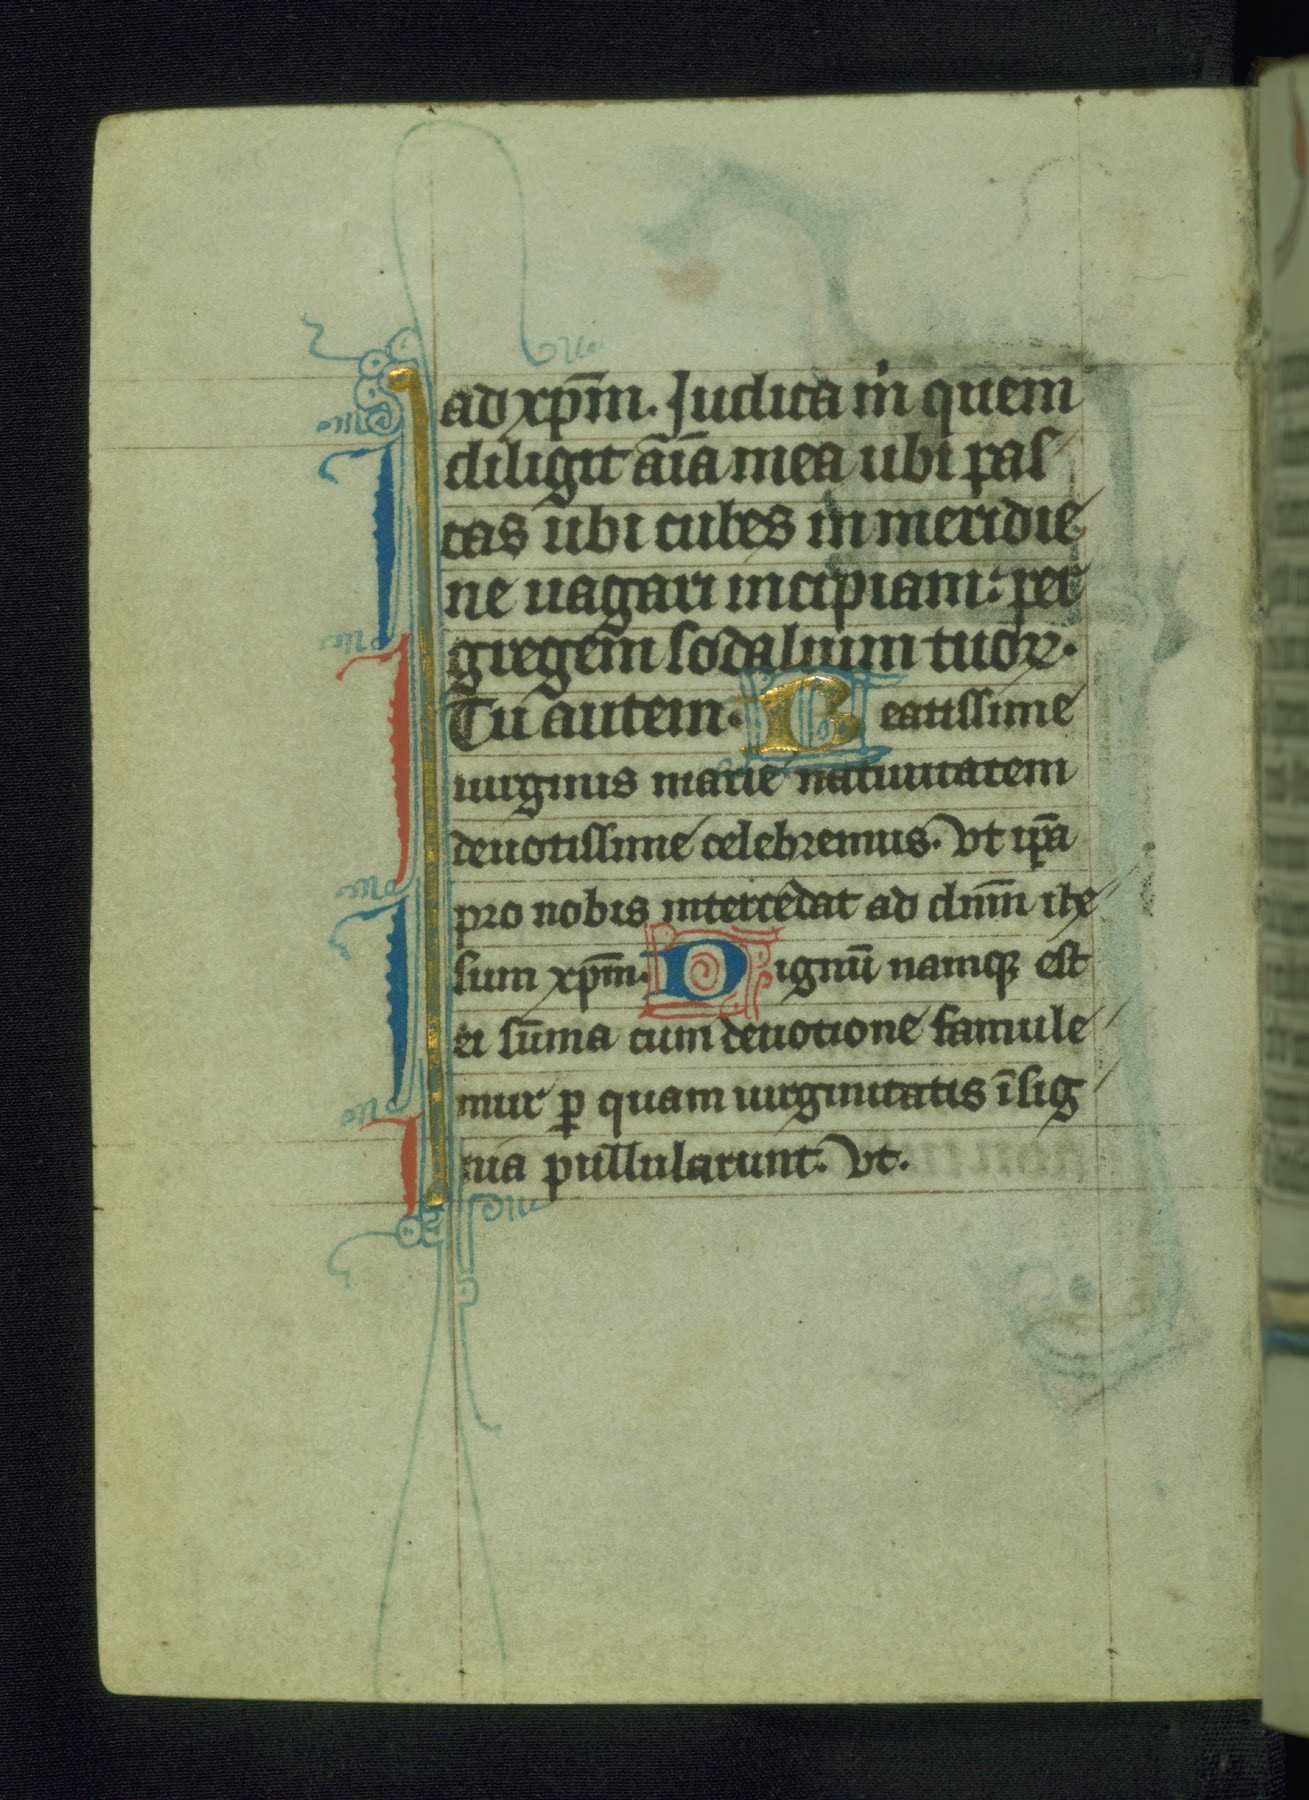 ad xp̄m. Judica m̉ quem
diligit āīa mea ubi pas
cas ubi cubes in meridie
ne uagari incipiam: per
gregem sodalium tuoꝝ.
Tu autem. Beatissime
uirginis marie natiuitatem
deuotissime celebremus. Vt ip̄a
pro nobis intercedat ad dn̄m ihe
sum xp̄m. Dignū namqꝫ est
ei sūma cum deuotione famule
mur ꝑ quam uirginitatis īsig
nia pullularunt. Vt.